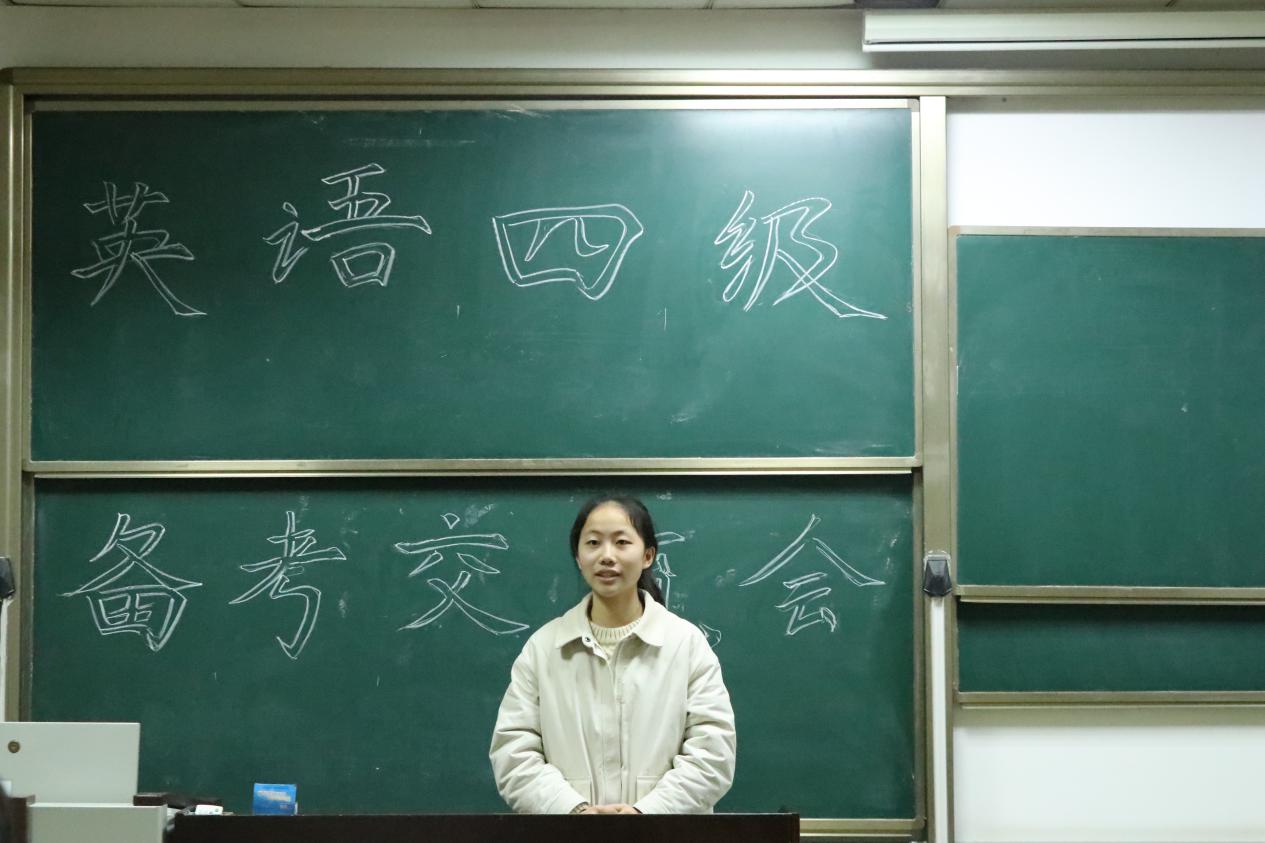 英语四级
备考交 会